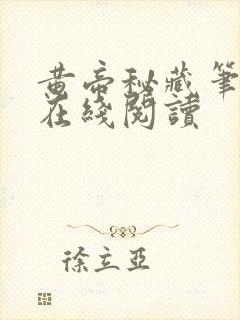 黄帝秘藏筆
在綫閱讀
徐立亞